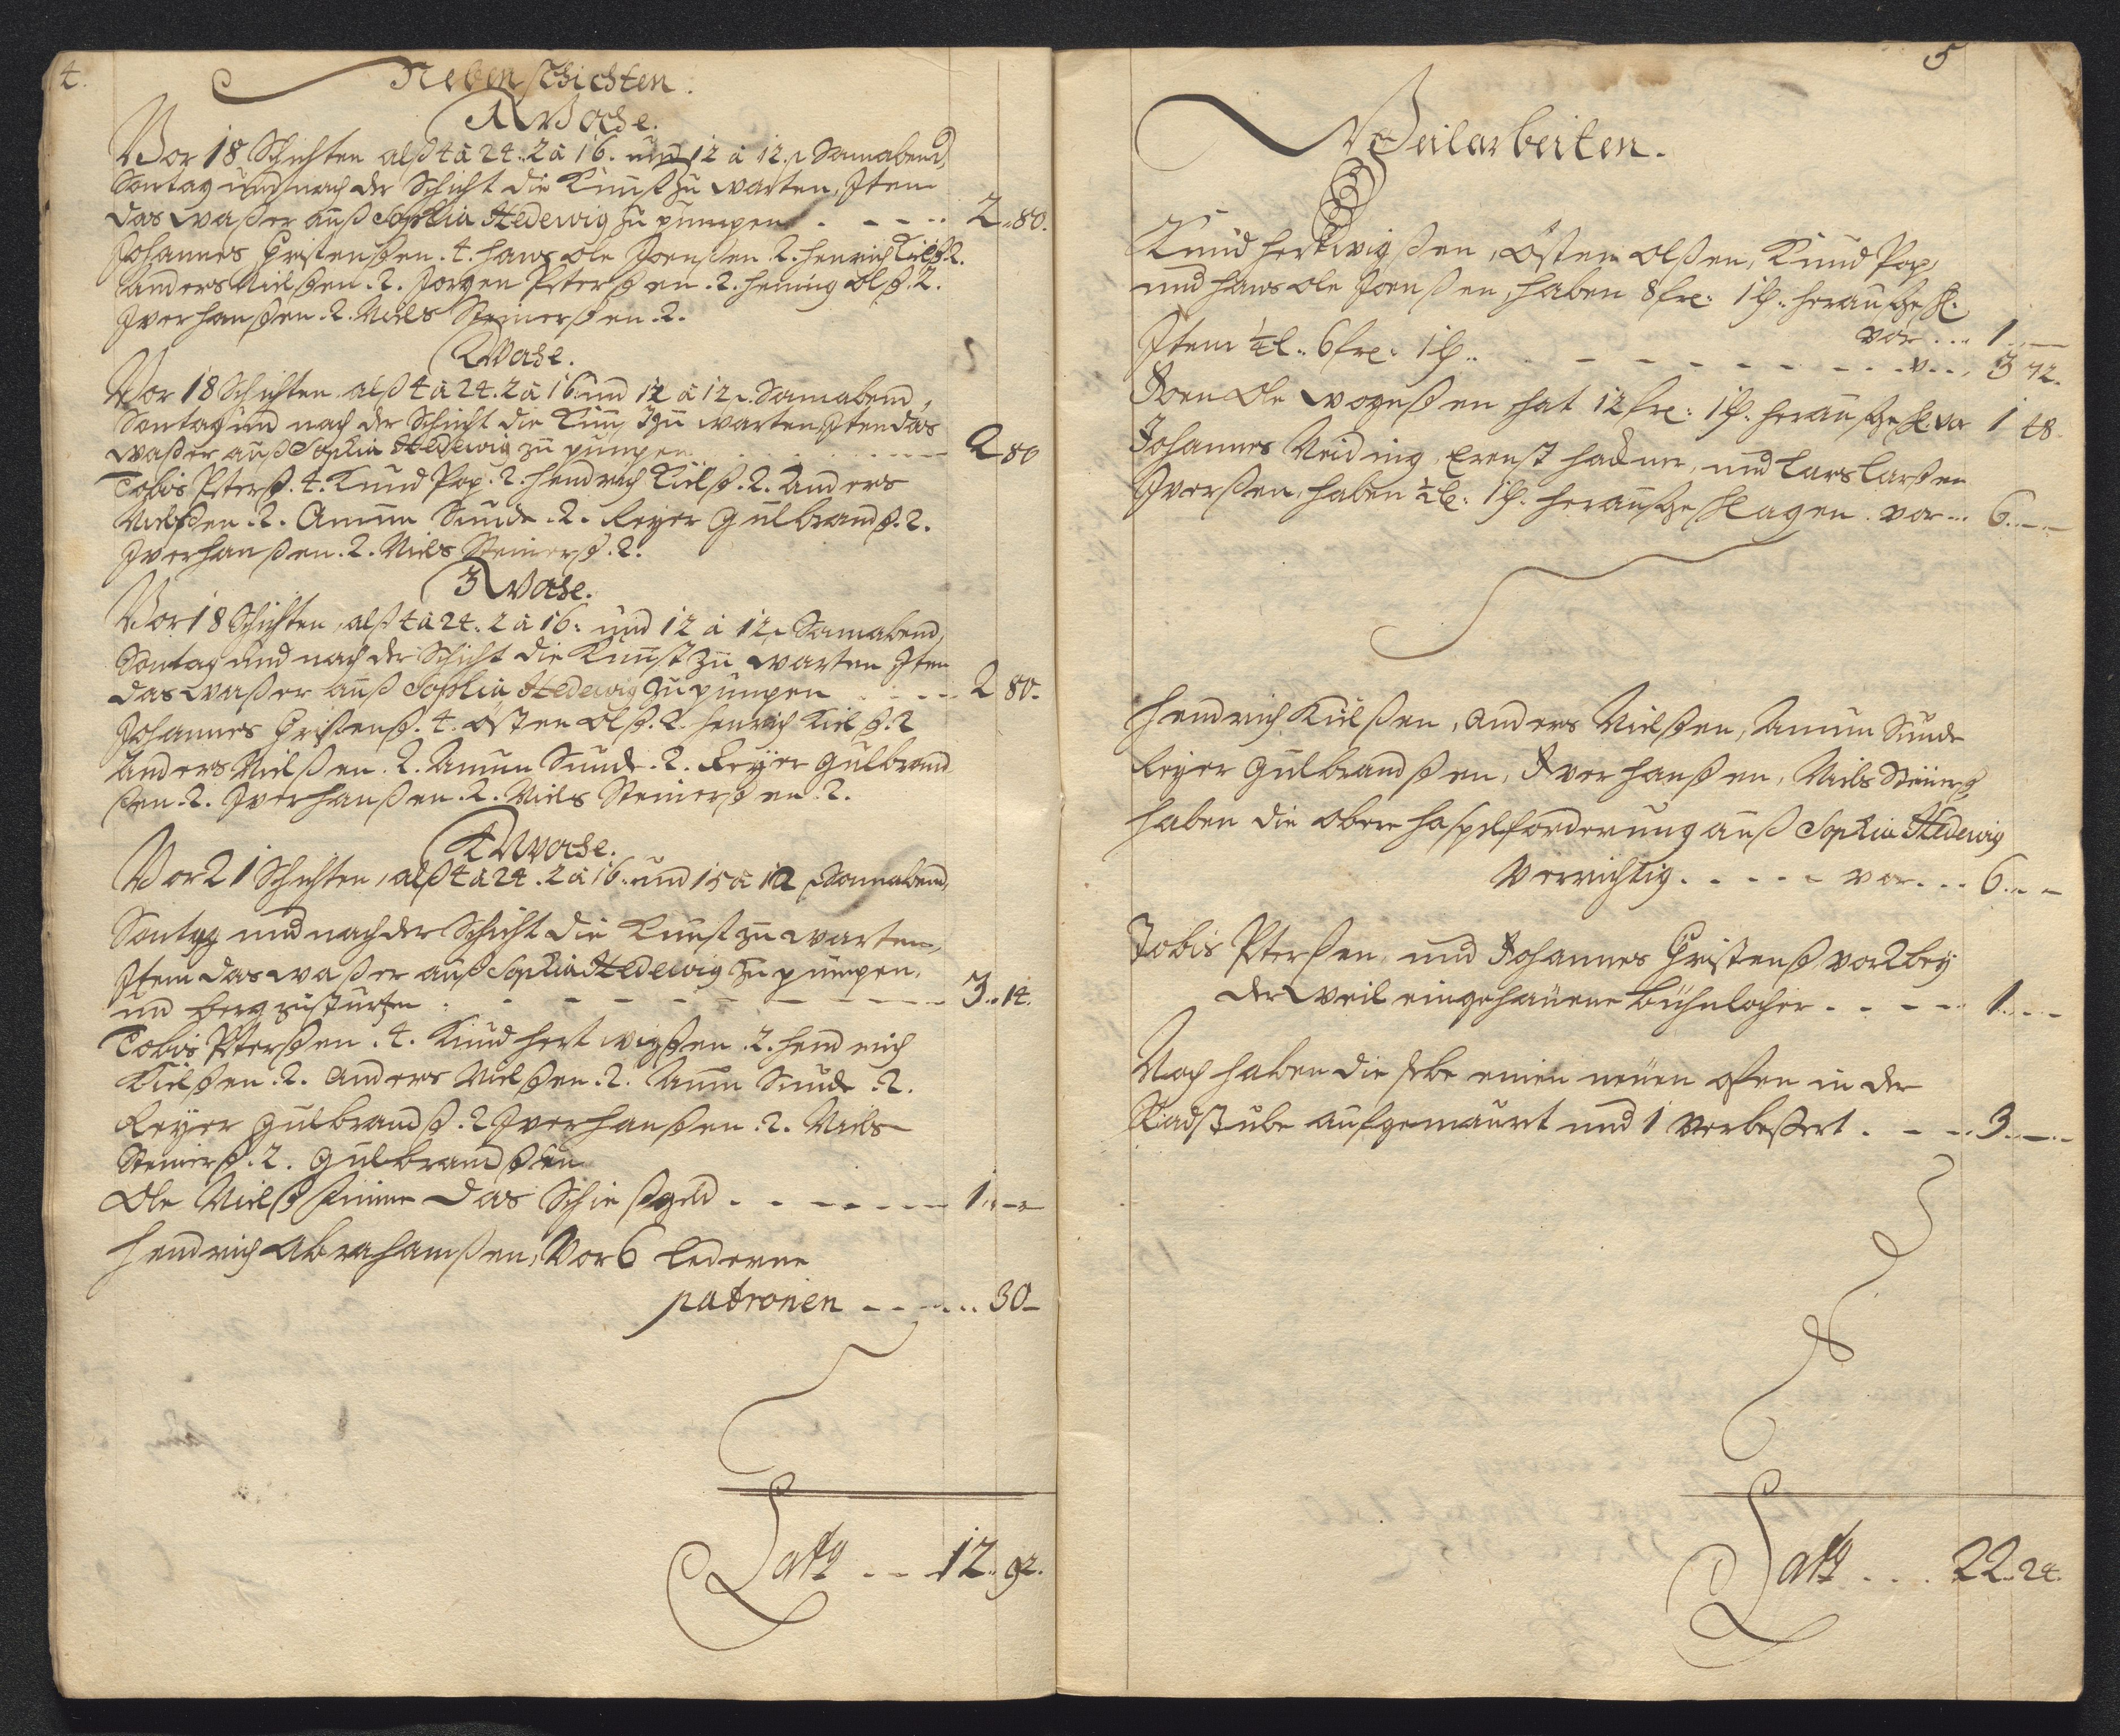 4.
Nebenschichten.
1 Woche.
Vor 18 Schichten alß 4 à 24. 2 à 16. und 12 à 12. Sonnabend,
Sontag und nach der Schicht die Kunst zu warten, Item
das waßer auß Sophia Hedewig zu pumpen . - - - .. 2.. 80.
Johannes Christenßen. 4. Hans Ole Joenßen. 2. Henrich Kielß. 2.
Anders Nielßen. 2. Jorgen Peterßen. 2. Hening Olß. 2.
Iver Hanßen. 2. Niels Steinerßen. 2.
2 Woche.
Vor 18 Schichten, alß 4 à 24. 2 à 16. und 12 à 12. Sonnabend,
Sontag und nach der Schicht die Kunst zu warten, Item das
waßer auß Sophia Hedewig zu pumpen . . . . - - - 2 80
Tobis Peterß. 4. Knud Pop. 2. Hendrich Kielß. 2. Anders
Nielßen. 2. Amun Sunde. 2. Reyer Gulbrandß. 2.
Iver Hanßen. 2. Niels Steinerß. 2.
3 Woche.
Vor 18 Schichten, alß 4 à 24. 2 à 16. und 12 à 12. Sonnabend,
Sontag und nach der Schicht die Kunst zu warten Item
das waßer auß Sophia Hedewig zu pumpen . . . . . 2 80.
Johannes Christenß. 4. Östen Olß. 2. Henrich Kielß. 2
Anders Nielßen. 2. Amun Sunde. 2. Reyer Gulbrand
ßen. 2. Iver Hanßen. 2. Niels Steinerßen. 2.
4 Woche.
Vor 21 Schichten, alß 4 à 24. 2 à 16. und 15 à 12 Sonnabend,
Sontag und nach der Schicht die Kunst zu warten,
Item das waßer auß Sophia Hedewig zu pumpen,
und berg zu sturtzen . - - - - - - - - 3.. 14.
Tobis Peterßen. 4. Knud Hertwigßen. 2. Hendrich
Kielßen. 2. Anders Nielßen. 2. Amun Sunde. 2.
Reyer Gulbrandß. 2 Iver Hanßen. 2. Niels
Steinerß. 2. Gulbrandßen
Ole Nielß Finne das Schießgeld . - - - - - - 1. - -
Hendrich Abrahamßen, Vor 6 lederne
patronen - - - .. 30 -
Latq - - 12.. 92.
5
Weilarbeiten.
Knud Hertwigßen, Östen Olßen, Knud Pop,
und Hans Ole Joenßen, haben 8 fre: 1 lß. heraußgeschl.
vor ... 1. -
Item 1/4 l.. 6 fre: 1 lß.. . - - - - - - - v. . . 3 72.
Joen Ole Vogußen hat 12 fre: 1 lß. heraußgeschl. vor 1 48.
Johannes Neiding, Ernst Hadner, und Lars Larßen
Iverßen, haben 1/2 l: 1 lß. heraußgeschlagen. vor ... 6. - -
Hendrich Kielßen, Anders Nielßen, Amun Sunde
Reyer Gulbrandßen, Iver Hanßen, Niels Steinerß
haben die obere haspelforderung auß Sophia Hedewig
Verrichtig . - - - - vor ... 6. - -
Tobis Peterßen, und Johannes Christenß vor 2 bey
der weil eingehauene Bühnlocher . - - - .. 1. - -
Noch haben dieselbe einen neuen ofen in der
Radstube aufgemaurt und 1 Verbeßert . - - .. 3. - -
Latq . . . 22.. 24.